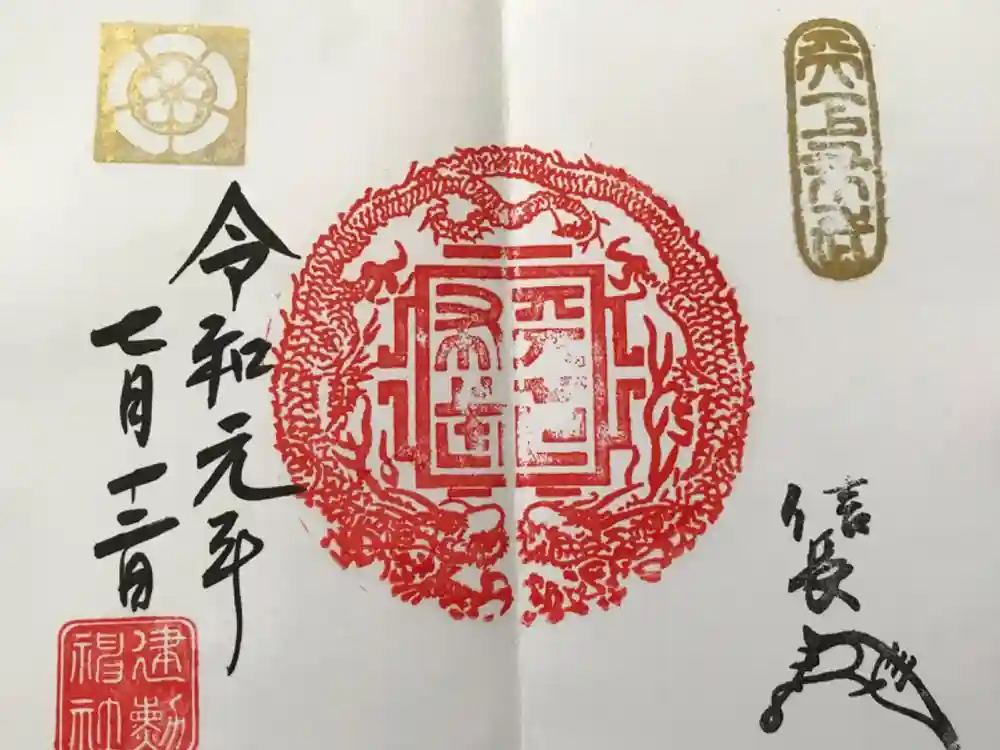 天下布武
信長
天下
布武
令和元年
七月十二日
建勲
神社